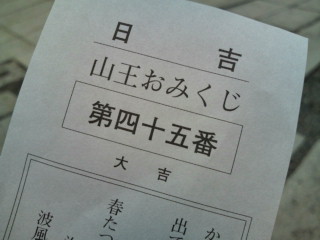 日吉
山王おみくじ
第四十五番
大吉
か
出
春たつ
波風